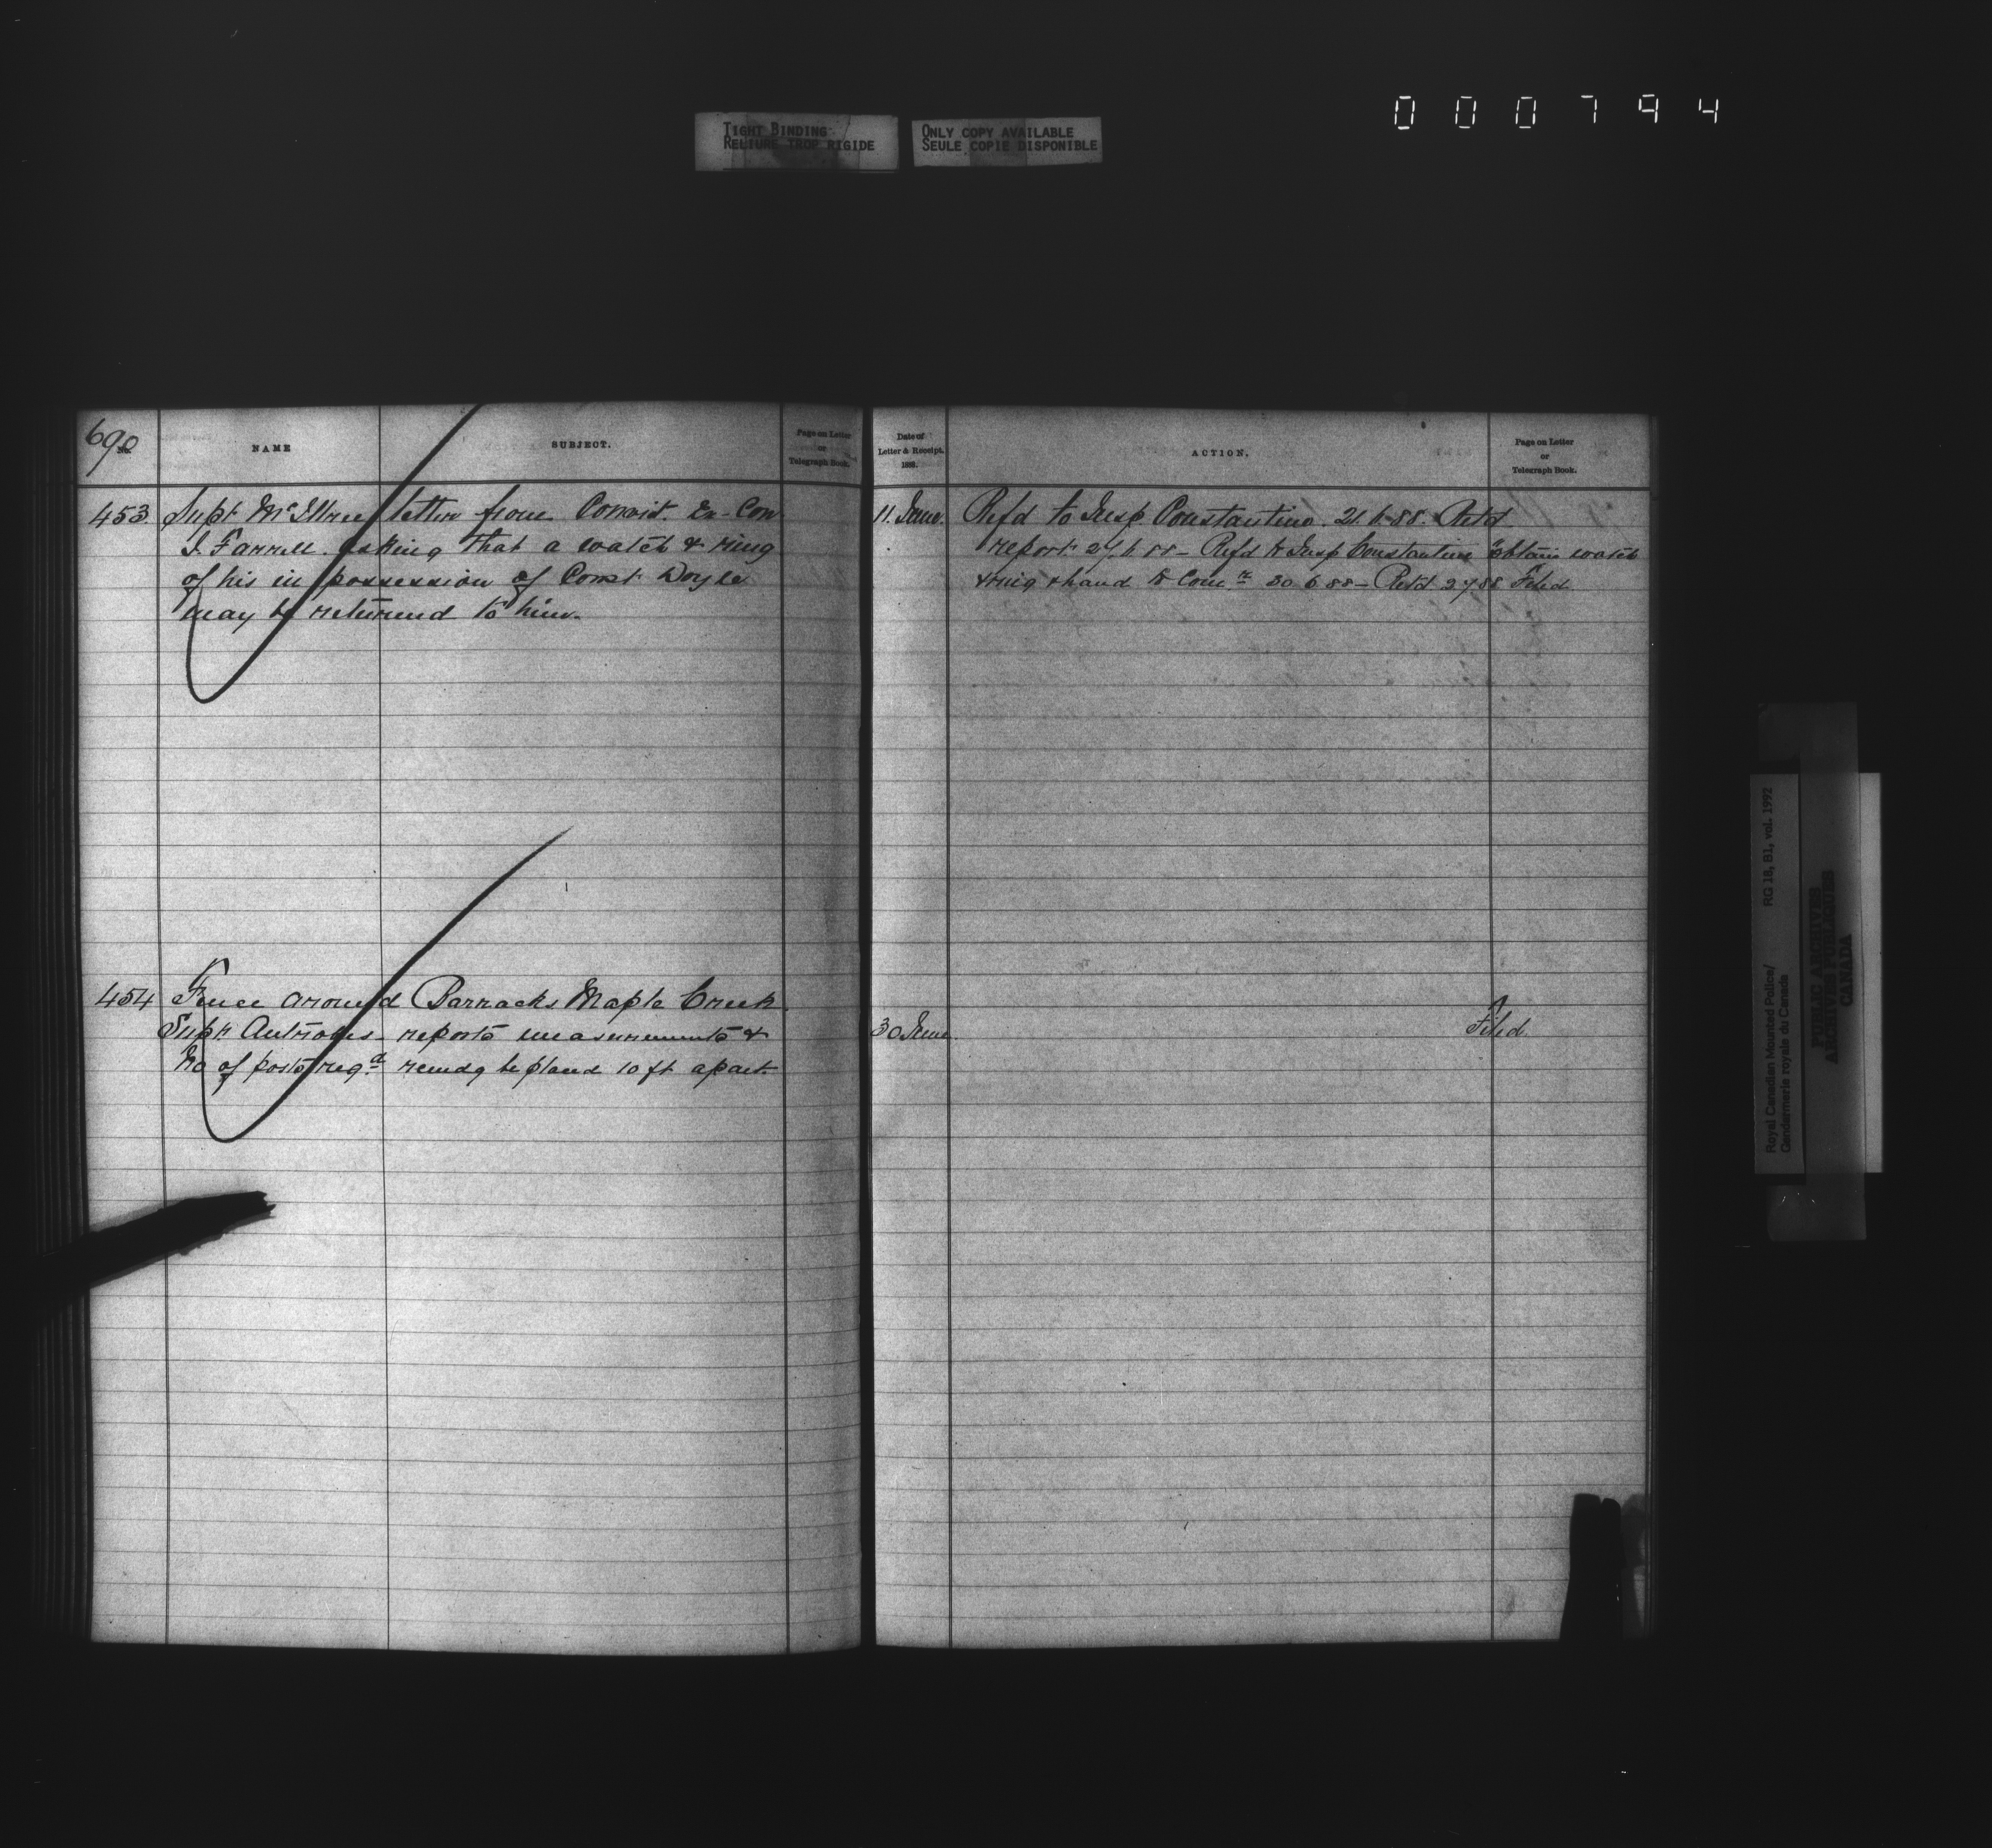 000794
TIGHT BINDING
RELIURE TROP RIGIDE
ONLY COPY AVAILABLE
SEULE COPIE DISPONIBLE
690
No.
NAME
SUBJECT.
Page on Letter
or
Telegraph Book.
Date of
Letter & Receipt.
1888.
ACTION.
Page on Letter
or
Telegraph Book.
453 Supt McIllree letter from Convict. Ex-Con
J. Farrell. asking that a watch & ring
of his in possession of Const. Doyle
may be returned to him.
11. June. Refd to Insp Constantine. 21.6.88. Retd
report 27.6.88 - Refd to Insp Constantine to obtain watch
& ring & hand to Comr 30.6.88 - Retd 2.7.88 Filed.
454 Fence around Barracks Maple Creek
Supt. Antrobus - reports measurements &
No of posts reqd recmdg be placed 10 ft apart.
30 June. Filed.
Royal Canadian Mounted Police/
Gendarmerie royale du Canada
RG 18, B1, vol. 1992
PUBLIC ARCHIVES
ARCHIVES PUBLIQUES
CANADA